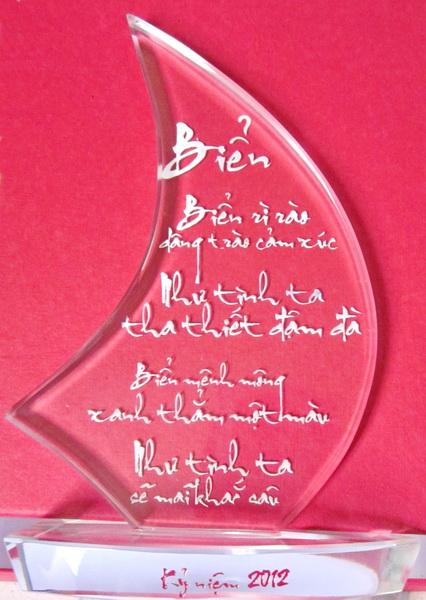 Biển
Biển rì rào
dâng trào cảm xúc
Như tình ta
tha thiết đậm đà
Biển mênh mông
xanh thẳm một màu
Như tình ta
sẽ mãi khắc sâu
Kỷ niệm 2012